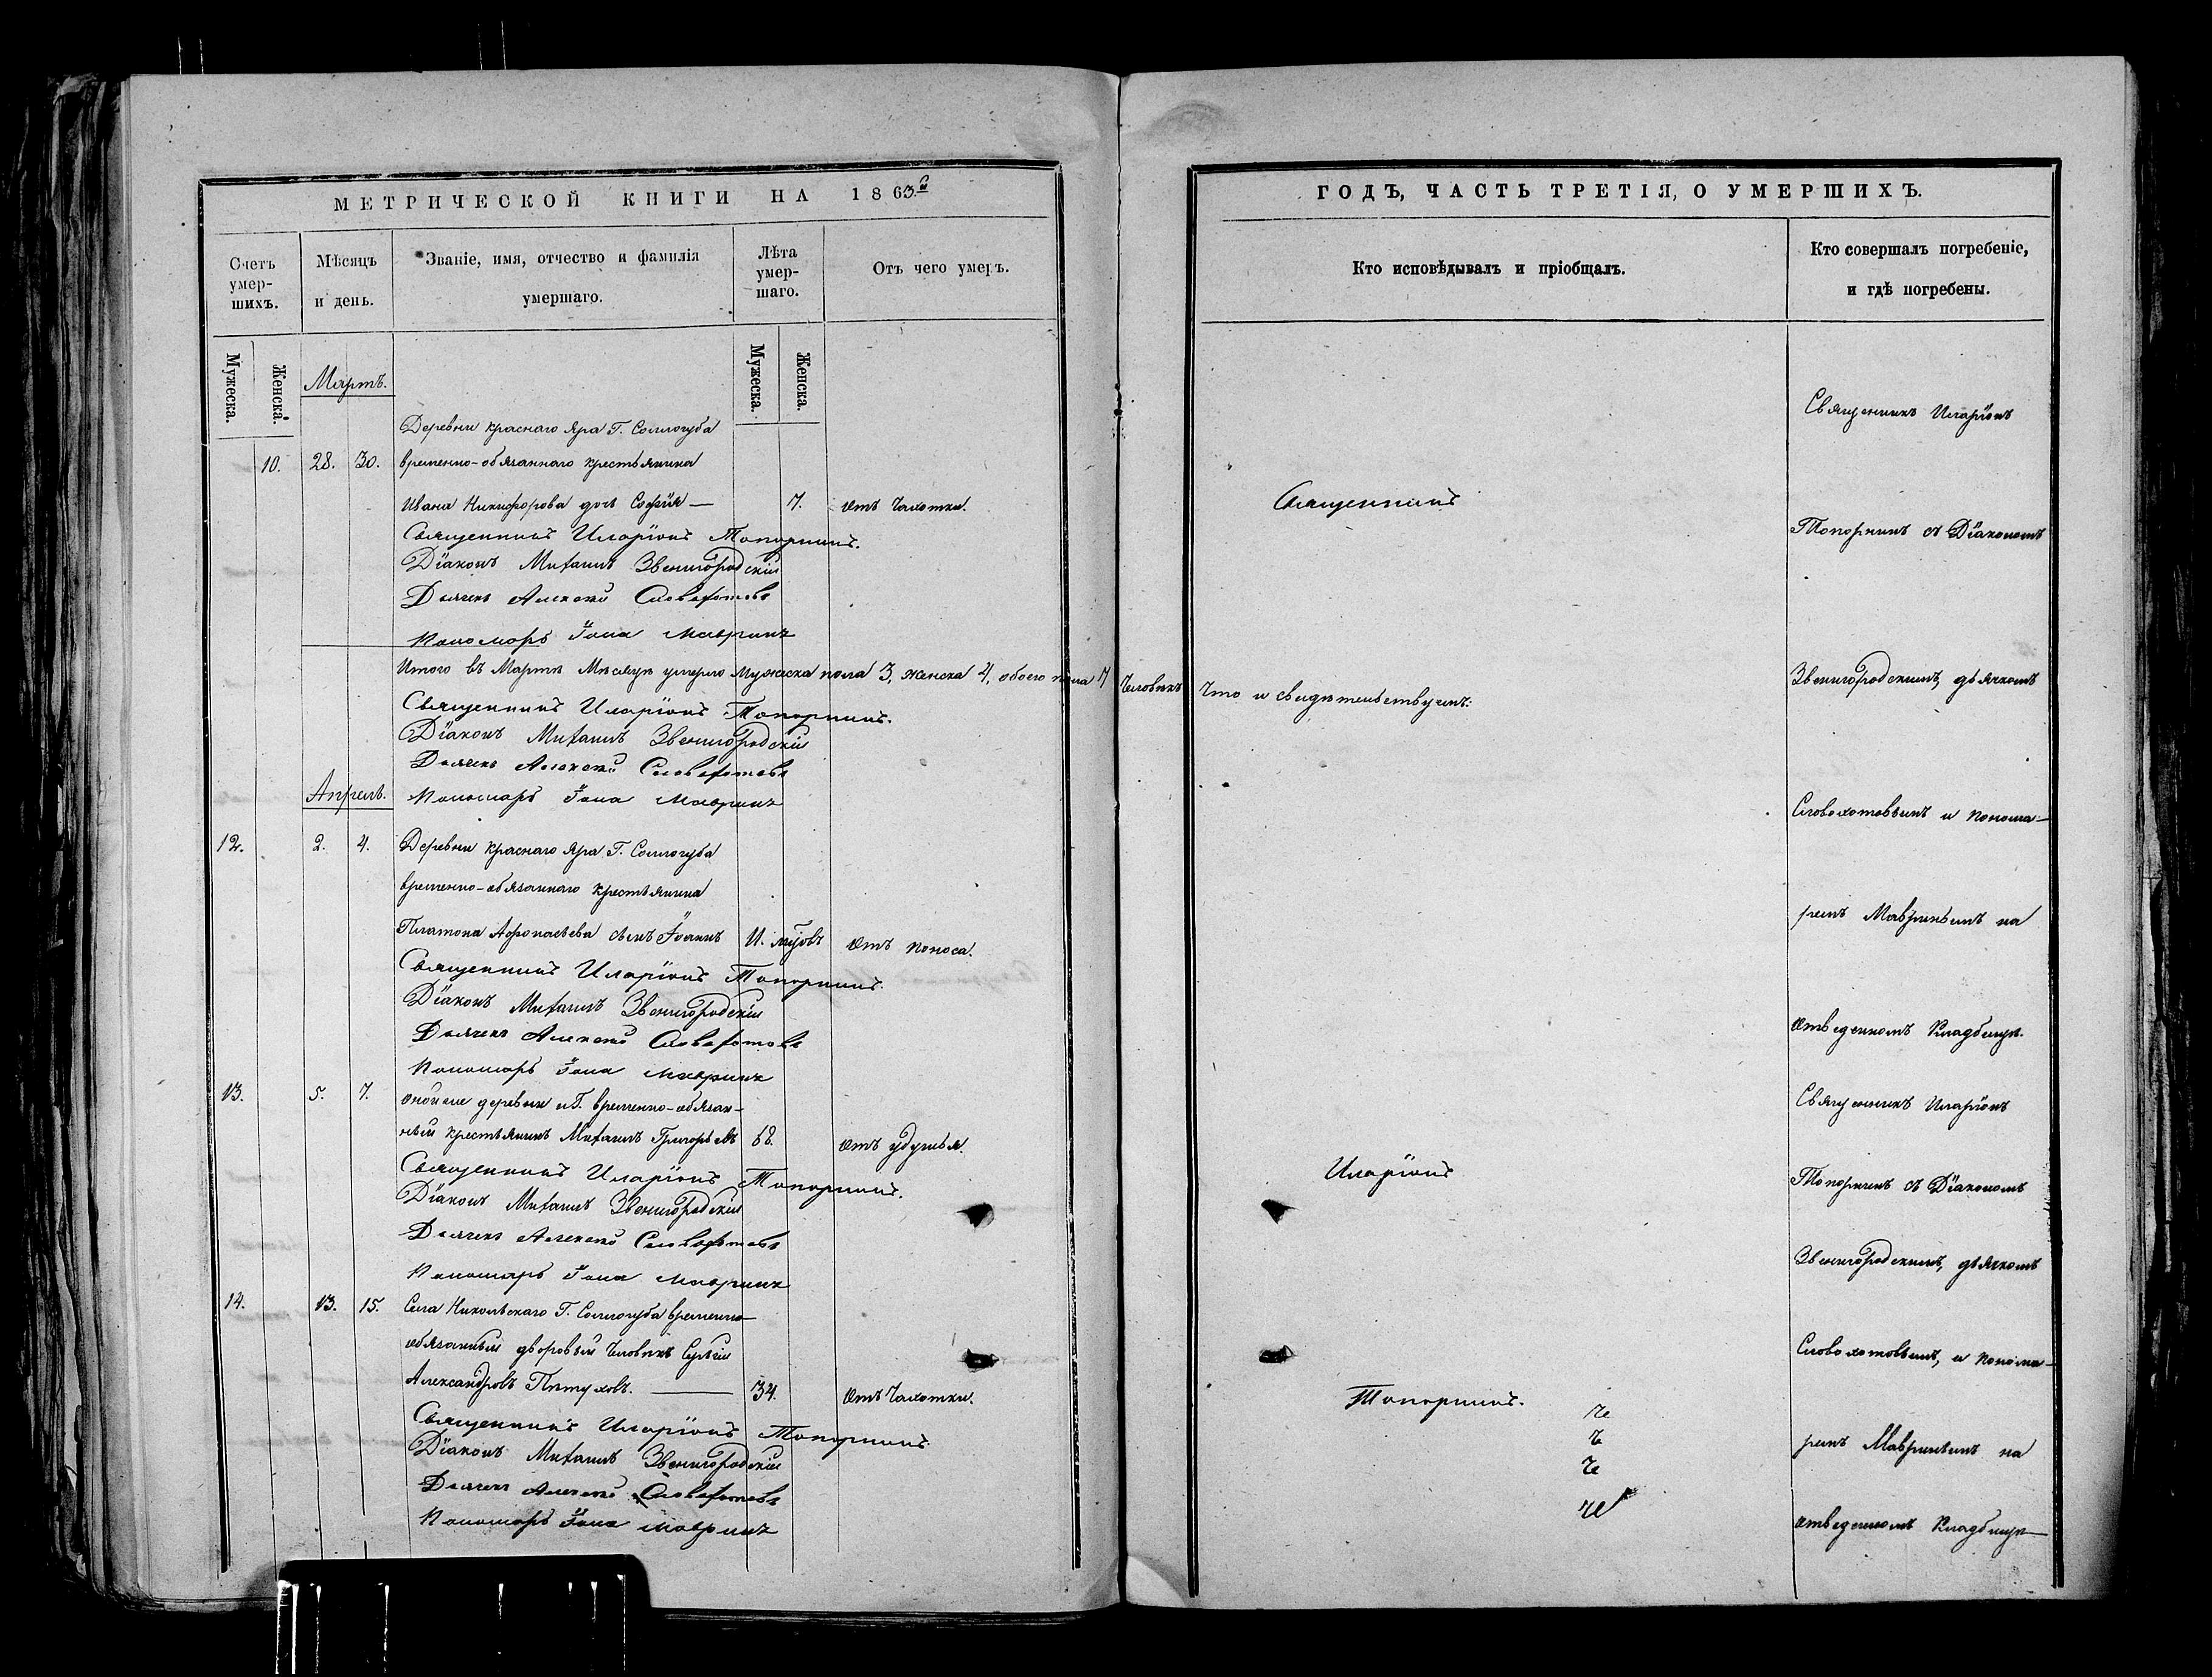 МЕТРИЧЕСКОЙ КНИГИ НА 1863й
Счетъ умер-шихъ.
Мѣсяцъ и день.
Званіе, имя, отчество и фамилія умершаго.
Лѣта умер-шаго.
Отъ чего умеръ.
Мужеска.
Женска.
Мартъ.
Мужеска.
Женска.
Деревни Краснаго Яра Г. Соллогуба
10. 28. 30. временно-обязаннаго крестьянина
Ивана Никифорова дочь Софія — 7. отъ чахотки.
Священникъ Иларіонъ Топорнинъ.
Діаконъ Михаилъ Звенигородскій
Дьячекъ Алексѣй Словохотовъ
Пономарь Іона Мавринъ
Итого въ Мартѣ Мѣсяцѣ умерло мужеска пола 3, женска 4, обоего пола 7 человѣкъ
Священникъ Иларіонъ Топорнинъ.
Діаконъ Михаилъ Звенигородскій
Дьячекъ Алексѣй Словохотовъ
Апрель.
Пономарь Іона Мавринъ
12. 2. 4. Деревни Краснаго Яра Г. Соллогуба
временно-обязаннаго крестьянина
Платона Афонасьева сынъ Іоаннъ отъ поноса.
Священникъ Иларіонъ Топорнинъ.
Діаконъ Михаилъ Звенигородскій
Дьячекъ Алексѣй Словохотовъ
Пономарь Іона Мавринъ
13. 5. 7. оной же деревни и Г. временно-обязан-
ный крестьянинъ Михаилъ Григорьевъ 68. отъ удушья.
Священникъ Иларіонъ Топорнинъ.
Діаконъ Михаилъ Звенигородскій
Дьячекъ Алексѣй Словохотовъ
Пономарь Іона Мавринъ
14. 13. 15. Села Никольскаго Г. Соллогуба временно-
обязанный дворовый человѣкъ Сергій
Александровъ Пѣтуховъ. — 34. отъ чахотки.
Священникъ Иларіонъ Топорнинъ
Діаконъ Михаилъ Звенигородскій
Дьячекъ Алексѣй Словохотовъ
Пономарь Іона Мавринъ
ГОДЪ, ЧАСТЬ ТРЕТІЯ, О УМЕРШИХЪ.
Кто исповѣдывалъ и пріобщалъ.
Кто совершалъ погребеніе, и гдѣ погребены.
Священникъ
что и свидѣтельствуемъ:
Иларіонъ
Топорнинъ.
Священникъ Иларіонъ
Топорнинъ съ Діакономъ
Звенигородскимъ, дьячкомъ
Словохотовымъ и понома-
ремъ Мавринымъ на
отведенномъ кладбищѣ.
Священникъ Иларіонъ
Топорнинъ съ Діакономъ
Звенигородскимъ, дьячкомъ
Словохотовымъ, и понома-
ремъ Мавринымъ на
отведенномъ кладбищѣ